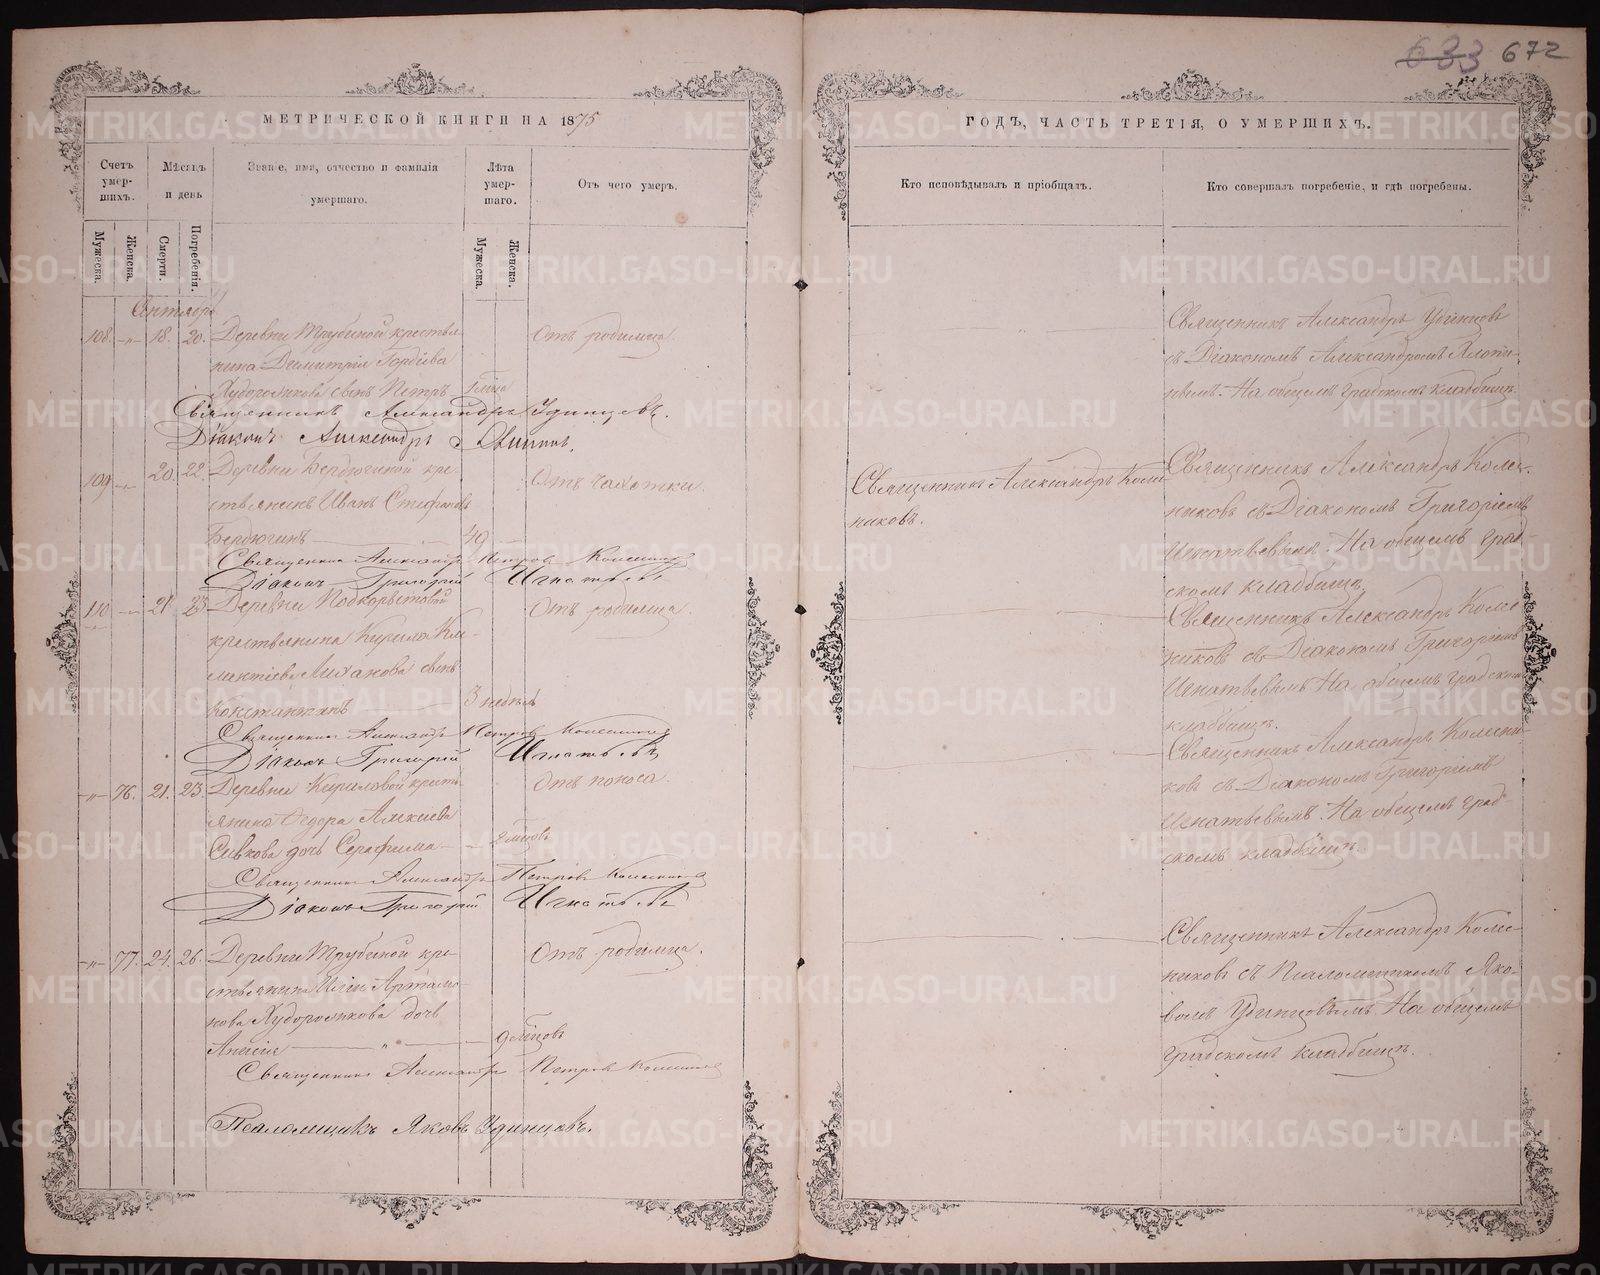 633 672
МЕТРИЧЕСКОЙ КНИГИ НА 1875
ГОДЪ, ЧАСТЬ ТРЕТІЯ, О УМЕРШИХЪ.
Счетъ умер-шихъ.
Мѣсяцъ и день
Званіе, имя, отчество и фамилія умершаго.
Лѣта умер-шаго.
Отъ чего умеръ.
Кто исповѣдывалъ и пріобщалъ.
Кто совершалъ погребеніе, и гдѣ погребены.
Мужеска.
Женска.
Смерти.
Погребенія.
Мужеска.
Женска.
Сентябрь
108. -„- 18. 20. Деревни Трубиной крестья-
нина Димитрія Гордѣева
Худорожкова сынъ Петръ
Отъ родимца.
Священникъ Александръ Удинцевъ
съ Діакономъ Александромъ
На общемъ градскомъ кладбищѣ.
Священникъ Александръ Удинцевъ.
Діаконъ Александръ
109 -„- 20. 22. Деревни Бердюгиной кре-
стьянинъ Иванъ Стефановъ
Бердюгинъ 49
Отъ чахотки.
Священникъ Александръ Колес-
никовъ.
Священникъ Александръ Колес-
никовъ съ Діакономъ Григоріемъ
Игнатьевымъ. На общемъ град-
скомъ кладбищѣ.
Священникъ Александръ Петровъ Колесников
Діаконъ Григорій Игнатьевъ
110 -„- 21 23 Деревни Подкорытовой
крестьянина Кирила Кли-
ментіева сынъ
Константинъ 3 недѣль
Отъ родимца.
Священникъ Александръ Колес-
никовъ съ Діакономъ Григоріемъ
Игнатьевымъ На общемъ градском
кладбищѣ.
Священникъ Александръ Петровъ Колесников
Діаконъ Григорій Игнатьевъ
-„- 76. 21. 23. Деревни Кириловой кресть-
янина Федора Алексіева
Сивкова дочь Серафима 2 мѣсяцовъ
Отъ поноса
Священникъ Александръ Колесни-
ковъ съ Діакономъ Григоріемъ
Игнатьевымъ. На общемъ град-
скомъ кладбищѣ.
Священникъ Александръ Петровъ Колесников
Діаконъ Григорій Игнатьевъ
-„- 77. 24. 26. Деревни Трубиной кре-
стьянина Артамо-
нова Худорожкова дочь
Анисія 9 мѣсяцовъ
Отъ родимца.
Священникъ Александръ Колес-
никовъ съ Псаломщикомъ Яко-
вомъ Удинцовымъ. На общемъ
градскомъ кладбищѣ.
Священникъ Александръ Петровъ Колесников
Псаломщикъ Яковъ Удинцовъ.
METRIKI.GASO-URAL.RU